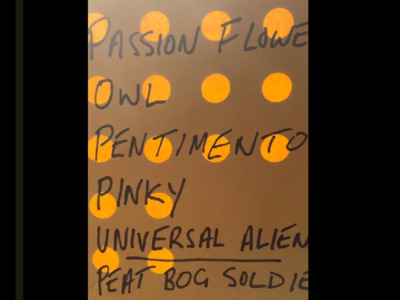 PASSION FLOWE
OWL
PENTIMENTO
PINKY
UNIVERSAL ALIEN
PEAT BOG SOLDIE